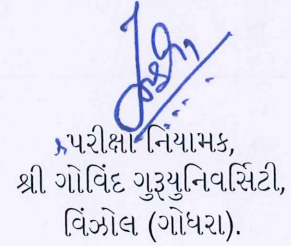 પરીક્ષા નિયામક,
શ્રી ગોવિંદ ગુરૂયુનિવર્સિટી,
વિંઝોલ (ગોધરા).